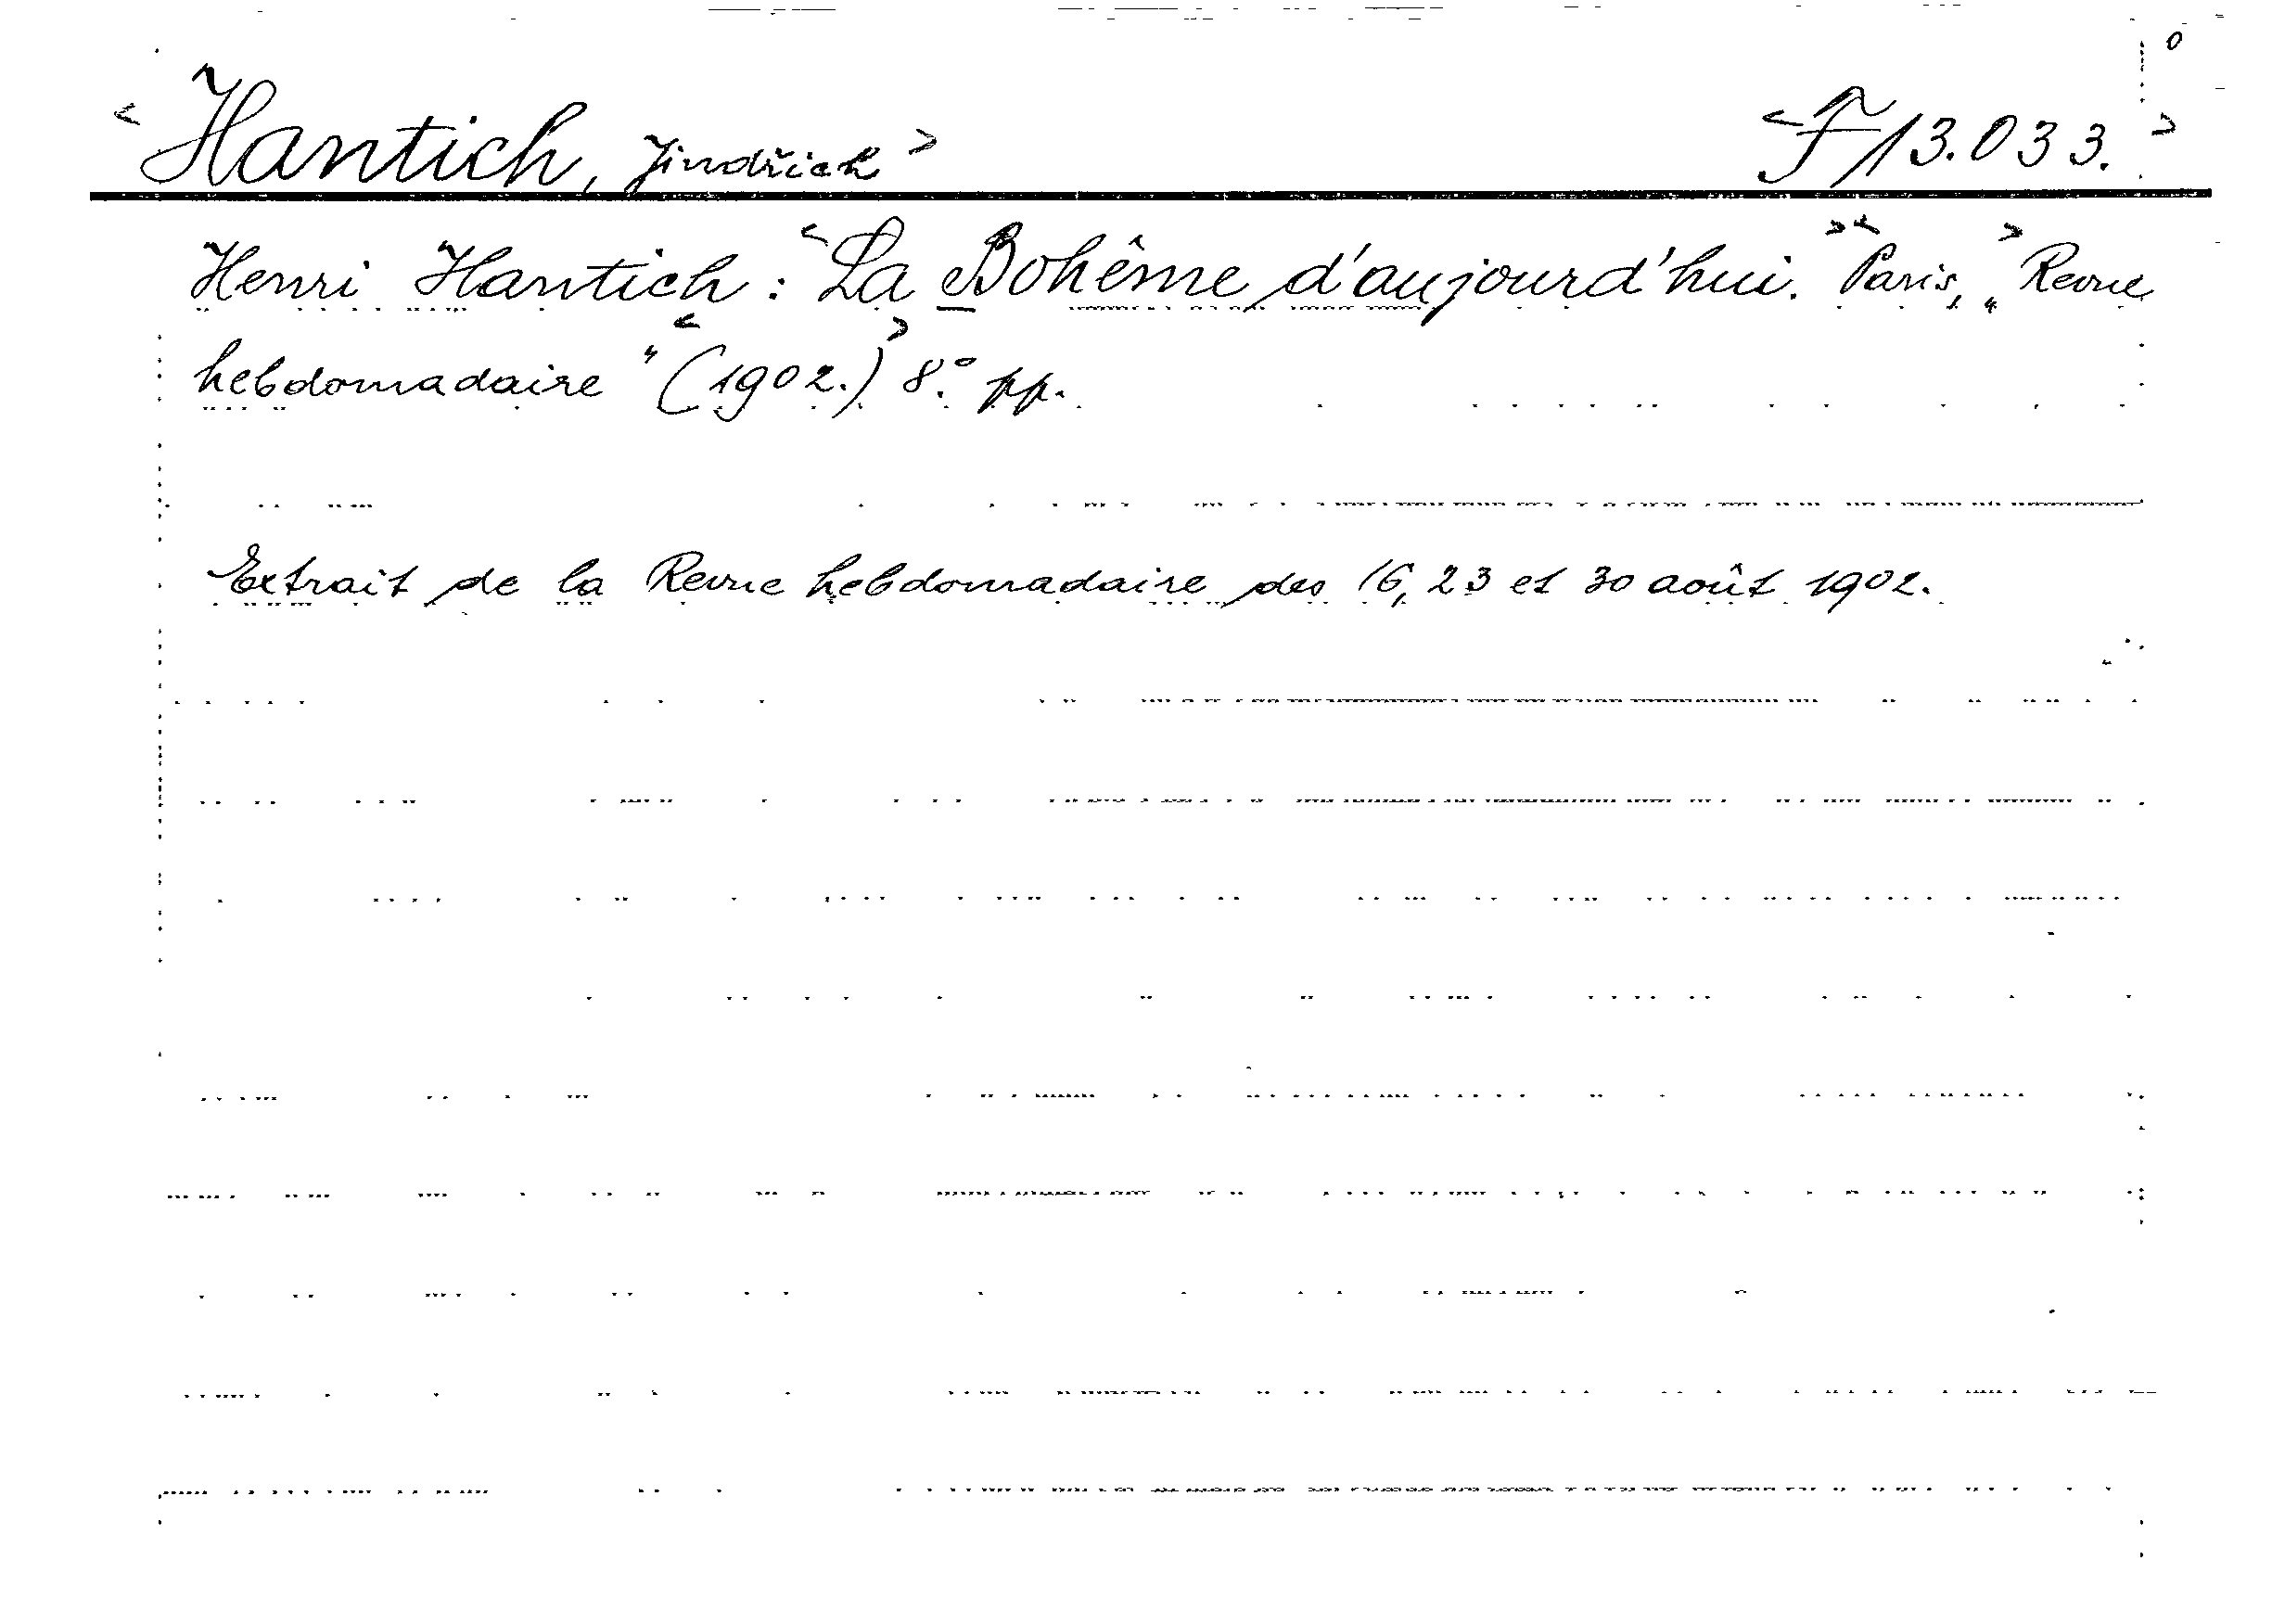 <Hantich, Jindřich> <F 13.033.>
Henri Hantich: <La Bohême d'aujourd'hui.> <Paris,> „Revue
hebdomadaire" <(1902.)> 8.° pp.
Extrait de la Revue hebdomadaire des 16, 23 et 30 août 1902.